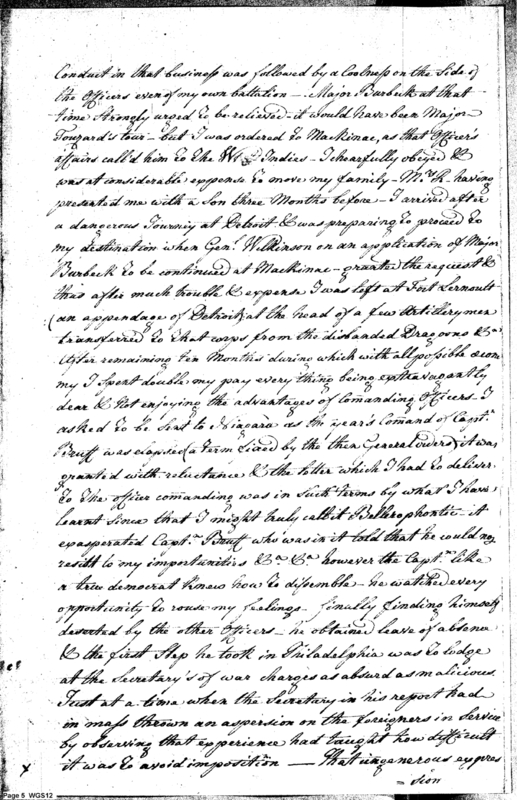 Conduct in that business was followed by a Coolness on the Side of
the Officers even of my own battalion — Major Burbeck at that
time Strongly urged to be relieved — it would have been Major
Touzard's tour — but I was ordered to Mackinac, as that Officer's
affairs call'd him to the W Indies — I chearfully obeyed &
was at considerable expense to move my family — Mrs R. having
presented me with a Son three Months before — I arrived after
a dangerous Journey at Detroit & was preparing to proceed to
my destination when Genl Wilkinson on an application of Major
Burbeck to be continued at Mackinac — granted the request &
thus after much trouble & expense I was left at Fort Lernoult
(an appendage of Detroit) at the head of a few Artillery men
transferred to that corps from the disbanded Dragoons &a
After remaining ten Months during which with all possible œcono
my I Spent double my pay every thing being extravagantly
dear & Not enjoying the advantages of Comanding Officers. I
asked to be Sent to Niagara as the year's Comand of Captn
Bruff was elapsed (a term fixed by the then General orders) it was
granted with reluctance & the letter which I had to deliver
to the officer comanding was in Such terms by what I have
learnt Since that I might truly call it Bellerophontic it
exasperated Captn Bruff who was in it told that he could not
resist to my importunities &a &a however the Captn like
a true democrat knew how to disemble — he watched every
opportunity to rouse my feelings — finally finding himself
deserted by the other Officers — he obtained leave of absence
& the first Step he took in Philadelphia was to lodge
at the Secretary's of war charges as absurd as malicious.
Just at a time when the Secretary in his report had
in mass thrown an aspersion on the foreigners in Service
by observing that experience had taught how difficult
it was to avoid imposition — That ungenerous expres
= sion
Page 5 WGS12